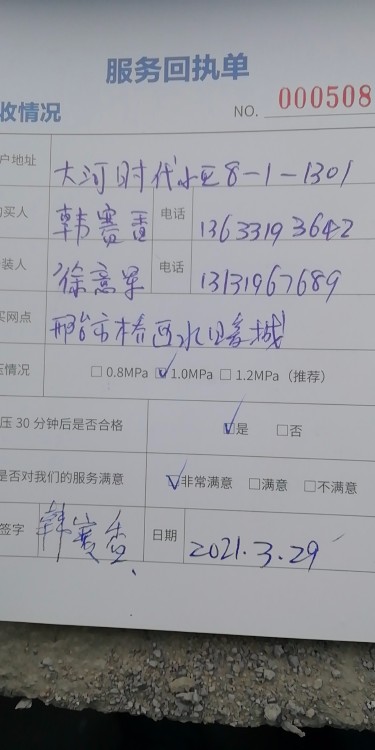 服务回执单
收情况 NO. 000508
户地址 大河时代小区8-1-1301
买人 韩赛 电话 13633193642
装人 徐意军 电话 13131967689
买网点 邢台市桥西水暖城
压情况 □ 0.8MPa ☑ 1.0MPa □ 1.2MPa（推荐）
压 30 分钟后是否合格 ☑是 □否
是否对我们的服务满意 ☑非常满意 □满意 □不满意
签字 韩赛 日期 2021.3.29